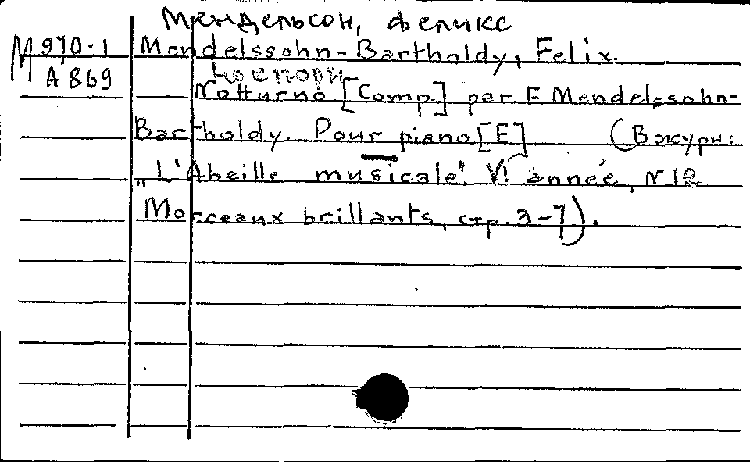 Мендельсон, Феликс
М 970-1 Mendelssohn-Bartholdy, Felix.
А 869
Notturno [Comp.] par F. Mendelssohn-
Bartholdy. Pour piano [E] (В журн:
"L'Abeille musicale". VI année, N 12
Morceaux brillants, стр. 3-7).